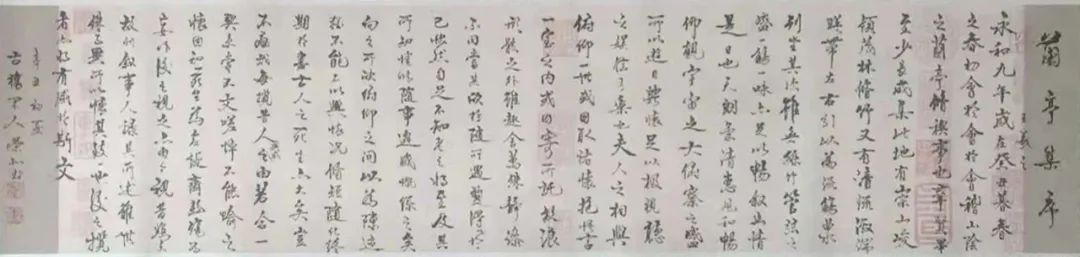 蘭亭集序
王羲之
永和九年歲在癸丑暮春
之春初會於會稽山陰
之蘭亭脩禊事也群賢畢
至少長咸集此地有崇山峻
領茂林脩竹又有清流激湍
暎帶左右引以為流觴曲水
列坐其次雖無絲竹管弦之
盛一觴一詠亦足以暢敘幽情
是日也天朗氣清惠風和暢
仰觀宇宙之大俯察之盛
所以遊目騁懷足以極視聽
之娛信可樂也夫人之相與
俯仰一世或取諸懷抱悟言
一室之內或因寄所託放浪
形骸之外雖趣舍萬殊靜躁
不同當其欣於所遇暫得於
己快然自足不知老之將至及其
所知惓情隨事遷感慨係之矣
向之所欣俯仰之間以為陳迹
猶不能不以興懷況脩短隨化終
期於盡古人云死生亦大矣豈
不痛哉每攬昔人興感之由若合一
契未嘗不文嗟悼不能喻之
懷固知死生為虛誕齊彭殤為
妄作後之視今亦由今之視昔悲夫
故列敘時人錄其所述雖世
殊事異所以興懷其致一也後之攬
者亦將有感於斯文
辛丑初夏
古人學書